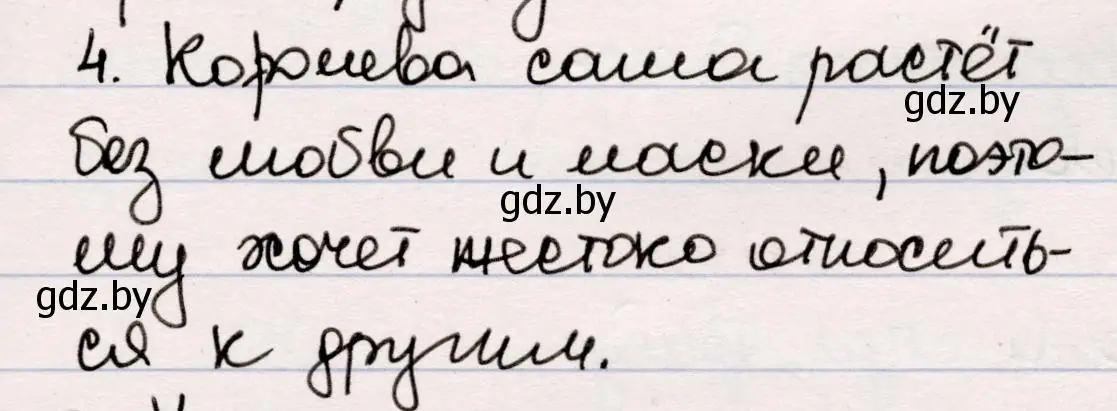 4. Королева сама растёт
gdz.by
без любви и ласки, поэто-
gdz.by
му хочет жестоко относить-
gdz.by
ся к другим.